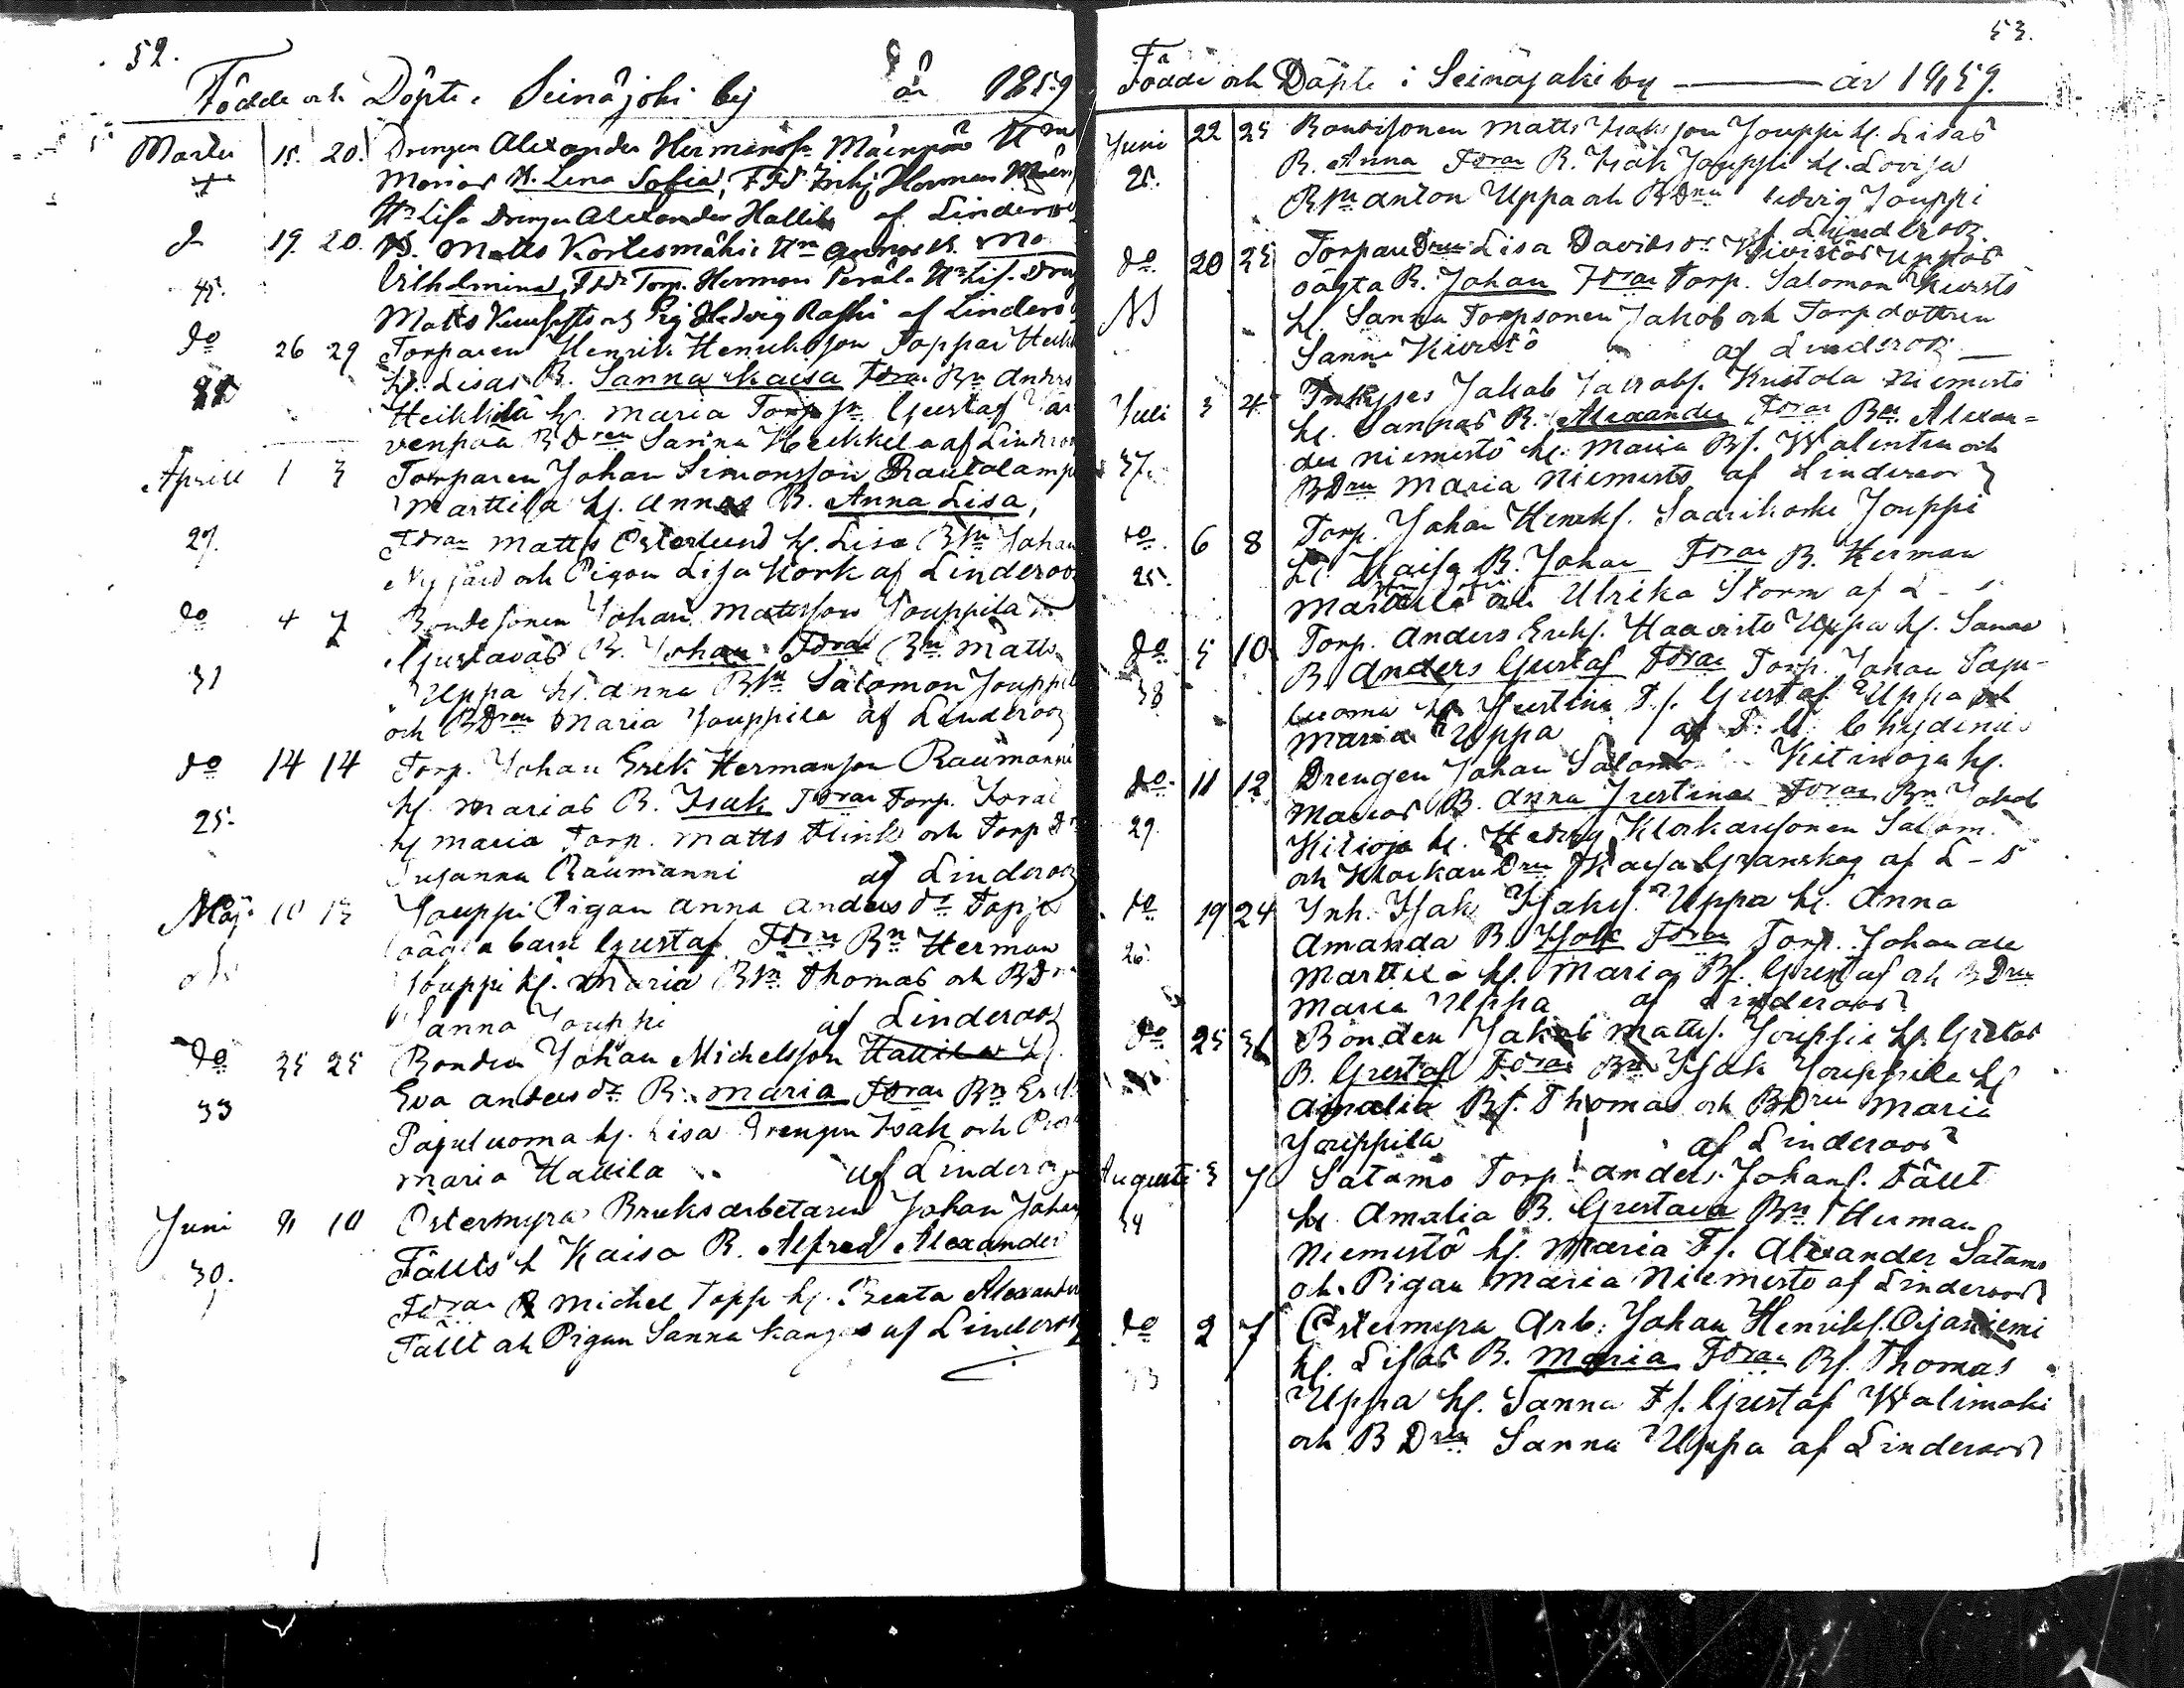 52.
Födde och Döpte i Seinäjoki by år 1859
Martii 15. 20. Drengen Alexander Hermansſn Mäenpää Hn
Marias B. Lena Sofia, Fdd Inhj Herman
Hn Lisa Drengen Alexander Hallila af Linderoos
19. 20. B. Matts Kortesmäki Hn Annas B.
45. Vilhelmina, Fdd Torp. Herman Perälä Hn Lis. Dreng
Matts och Pig Hedvig Raski af Linderoos
do 26 29 Torparen Henrik Henriksson Toppar
hſ. Lisas B. Sanna Kaisa Fdrar Bn Anders
Heikkilä hſ. Maria Torp ſn Gustaf Jär
venpää B Dren Sanna Heikkilä af Linderoos
Aprill 1 3 Torparen Johan Simonsson Rautalamp
Marttila hſ. Annas B. Anna Lisa,
27. Fdrar Matts Österlund hſ. Lisa Bſn Johan
Nygård och Pigan Lisa Kork af Linderoos
do 4 7 Bondesonen Johan Mattsson Jouppila
Gustavas B. Johan Fdrar Bn Matts
31 Uppa hſ. Anna Bſn Salomon Jouppila
och BDren Maria Jouppila af Linderoos
do 14 14 Torp. Johan Erik Hermansson Raumanni
hſ. Marias B. Isak Fdrar Torp.
25. hſ Maria Torp. Matts Flink och Torp Dr
Susanna Raumanni af Linderoos
Maj 10 13 Jouppi Pigan Anna Anders dr
oägta barn Gustaf Fdrar Bn Herman
Jouppi hſ. Maria Bſn Thomas och BDn
Sanna Jouppi af Linderoos
do 25 25 Bonden Johan Michelsson Hallila hſ.
Eva Anders dr B. Maria Fdrar Bn Erik
33 Pajuluoma hſ. Lisa Drengen Isak och
Maria Hallila af Linderoos
Juni 9 10 Östermyra Bruksarbetaren Johan Johan
Fällts h Kaisa B. Alfred Alexander
30. Fdrar B Michel Topp hſ. Beata Alexander
Fällt och Pigan Sanna Kangas af Linderoos
53.
Födde och Döpte i Seinäjoki by — år 1859.
Juni 22 25 Bondsonen Matts Isaksson Jouppi hſ. Lisas
B. Anna Fdrar B. Isak Jouppi hſ. Lovisa
25. Bſn Anton Uppa och B Dren Hedvig Jouppi
af Linderoos
do 20 25 Torpare Dren Lisa Davids dr Kivistös Uppas
oägta B. Johan Fdrar Torp. Salomon Kivistö
hſ. Sanna Torpsonen Jakob och Torpdottren
Sanna Kivistö af Linderoos
Juli 3 4 Inhyses Jakob Jakobſ. Kustola Niemistö
hſ. Sannas B. Alexander Fdrar Bn Alexan=
der Niemistö hſ. Maria Bſ. Walentin och
37. BDren Maria Niemistö af Linderoos
do 6 8 Torp. Johan Henrikſ. Saarikoski Jouppi
hſ. Kaisa B. Johan Fdrar B. Herman
25. Marttila och Ulrika Storm af L - s
do 5 10 Torp. Anders Erikſ. Haavisto Uppa hſ. Sanna
B. Anders Gustaf Fdrar Torp. Johan Paju-
38 luoma hſ. Justina Tſ. Gustaf Uppa och
Maria Uppa af F. G. Chydenius
do 11 12 Drengen Johan Salomo Kitinoja hſ.
Marias B. Anna Justina Fdrar Bn Jakob
29. Kitinoja hſ. Hedvig Klockarsonen Salom.
och Klockare Dren Kaisa Granskog af L - s
do 19 24 Inh. Isak Isaksſ. Uppa hſ. Anna
Amanda B. Isak Fdrar Torp. Johan
26. Marttila hſ. Maria Bſ. Gustaf och B Dren
Maria Uppa af Linderoos
do 25 31 Bonden Jakob Mattsſ. Jouppi hſ. Gretas
B. Gustaf Fdrar Bn Isak Jouppila hſ
Amalia Bſ. Thomas och BDren Maria
Jouppila af Linderoos
Augusti 3 7 Satamo Torp. Anders Johanſ. Fällt
hſ. Amalia B. Gustava Bn Herman
34 Niemistö hſ. Maria Tſ. Alexander Satamo
och Pigan Maria Niemistö af Linderoos
do 2 7 Östermyra Arb. Johan Henrikſ. Ojaniemi
hſ. Lisas B. Maria Fdrar Bſ. Thomas
33 Uppa hſ. Sanna Tſ. Gustaf Walimäki
och B Dren Sanna Uppa af Linderoos